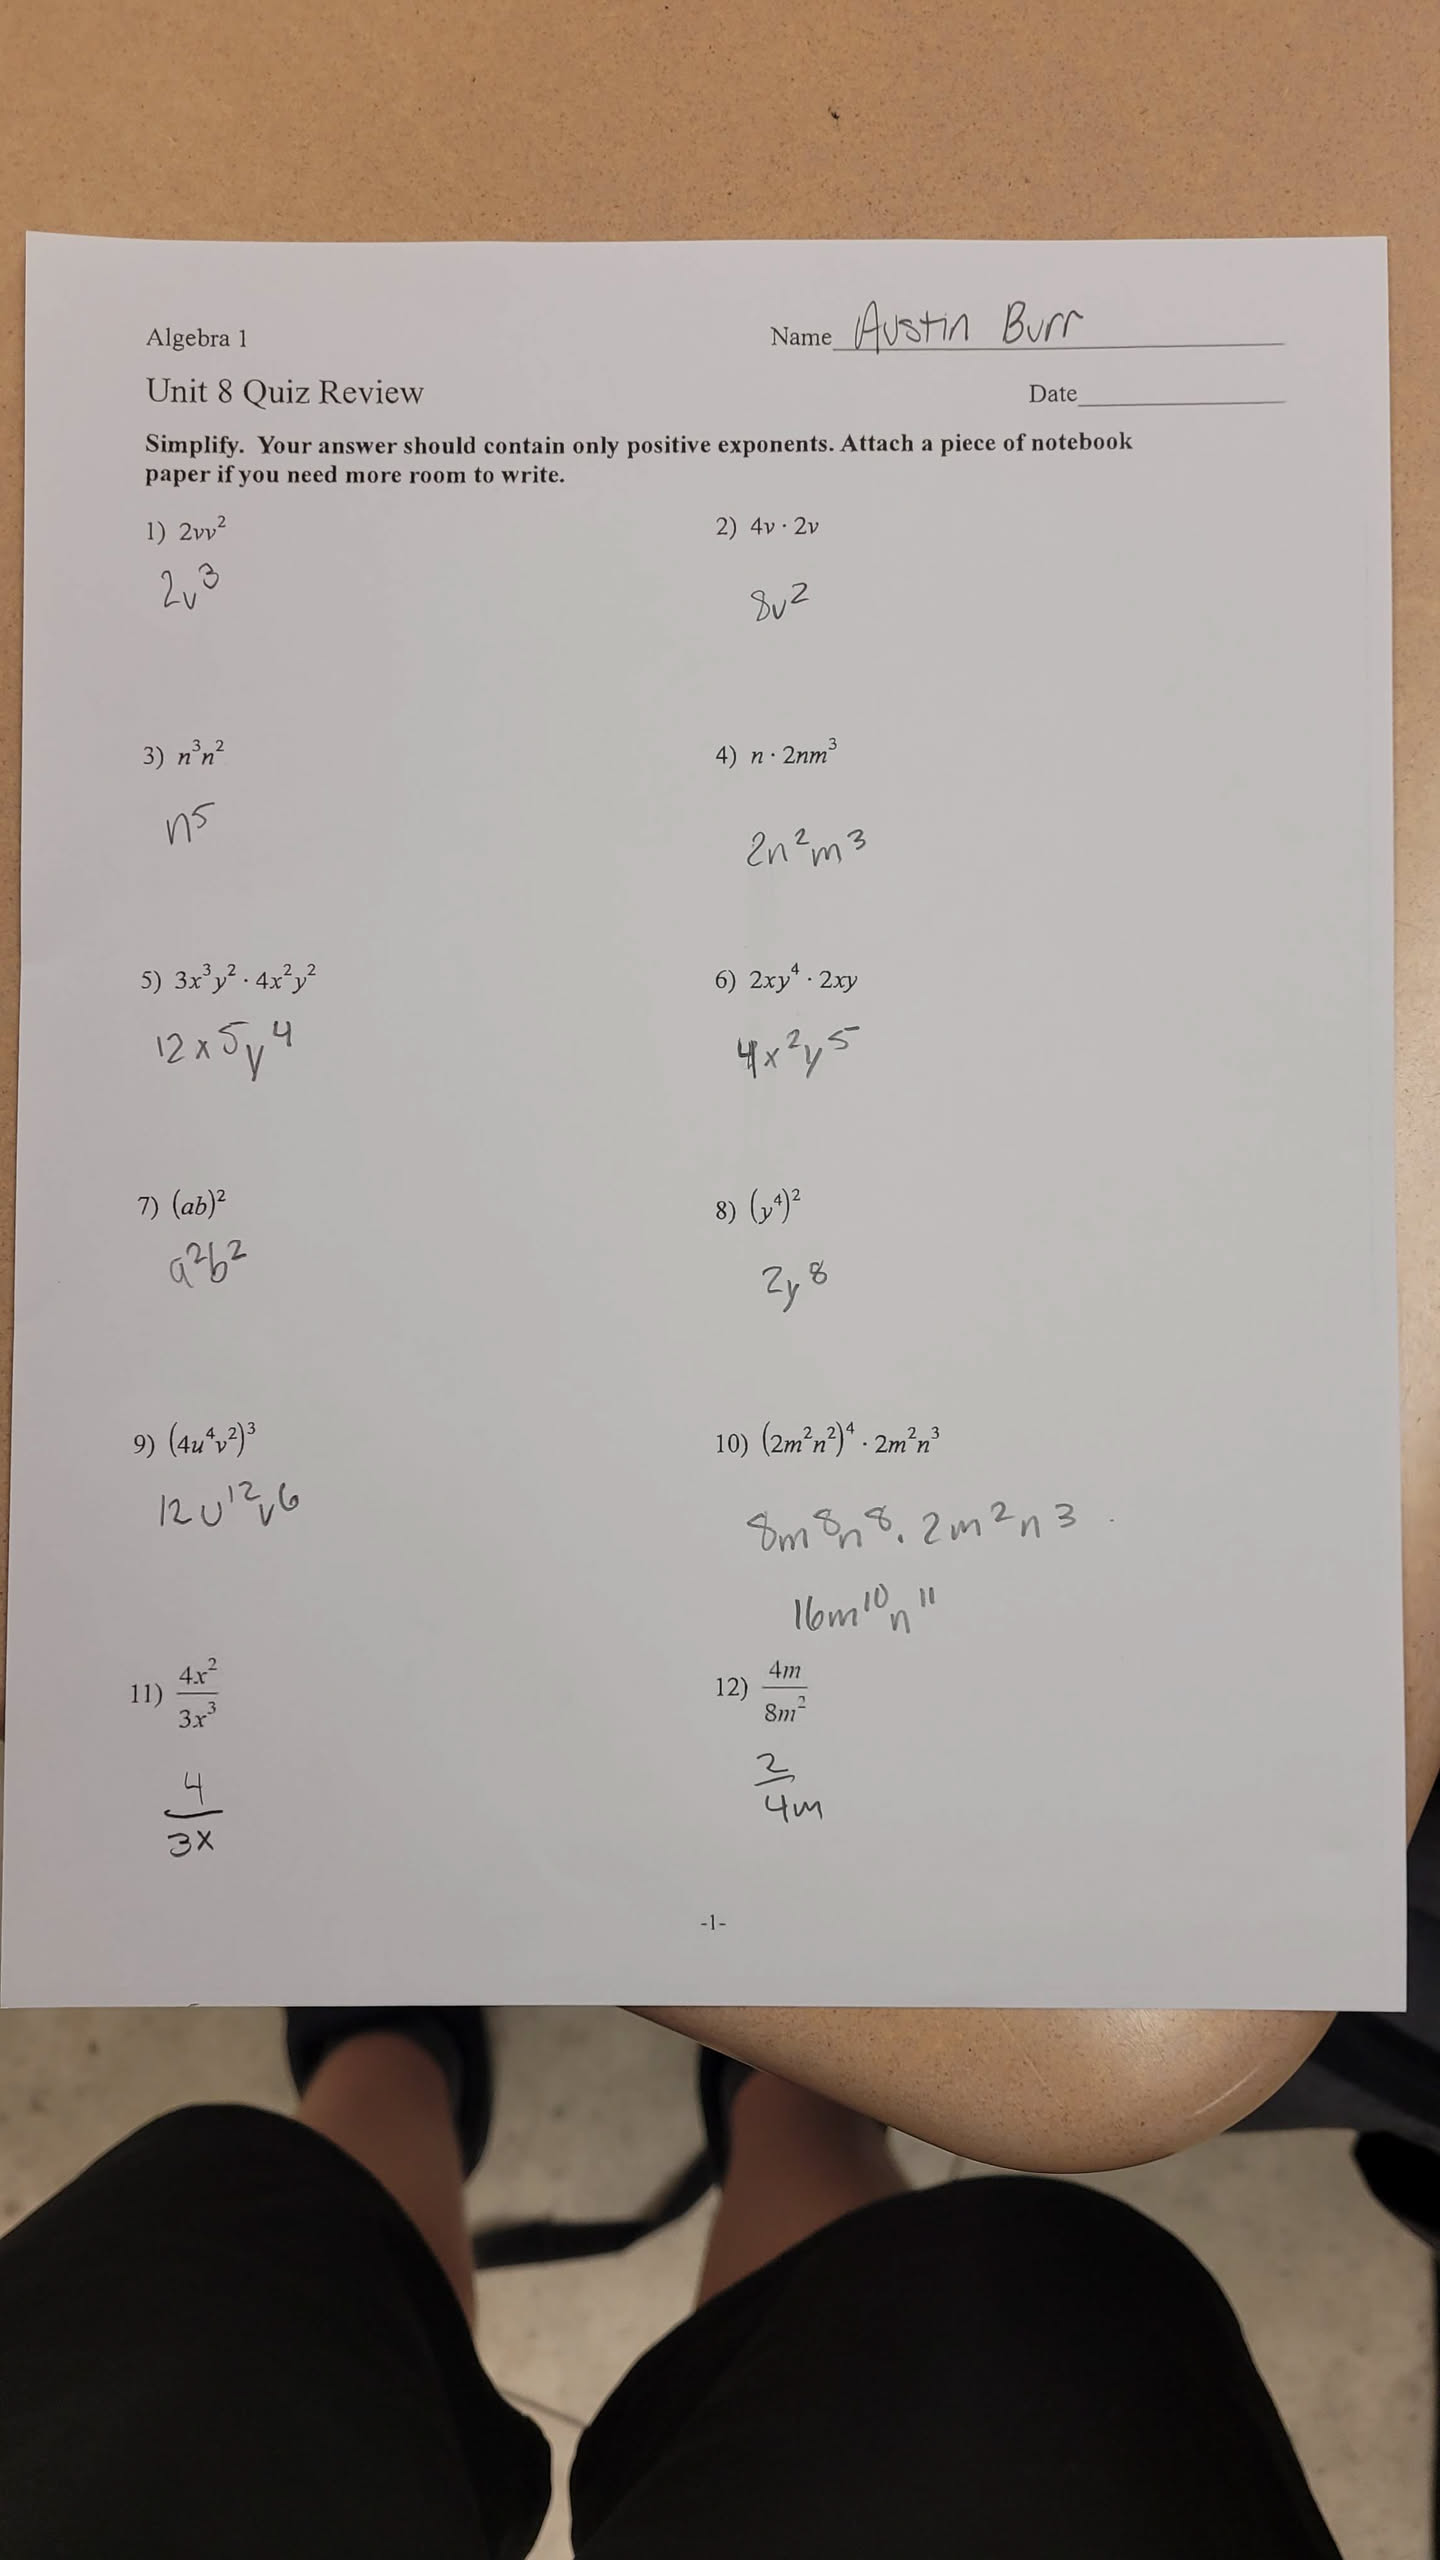 Algebra 1
Name Austin Burr
Unit 8 Quiz Review
Date
Simplify. Your answer should contain only positive exponents. Attach a piece of notebook
paper if you need more room to write.
1) 2vv²
2v³
2) 4v · 2v
8v²
3) n³n²
n⁵
4) n · 2nm³
2n²m³
5) 3x³y² · 4x²y²
12x⁵y⁴
6) 2xy⁴ · 2xy
4x²y⁵
7) (ab)²
a²b²
8) (y⁴)²
2y⁸
9) (4u⁴v²)³
12u¹²v⁶
10) (2m²n²)⁴ · 2m²n³
8m⁸n⁸ · 2m²n³
16m¹⁰n¹¹
11) 4x²/3x³
4/3x
12) 4m/8m²
2/4m
-1-